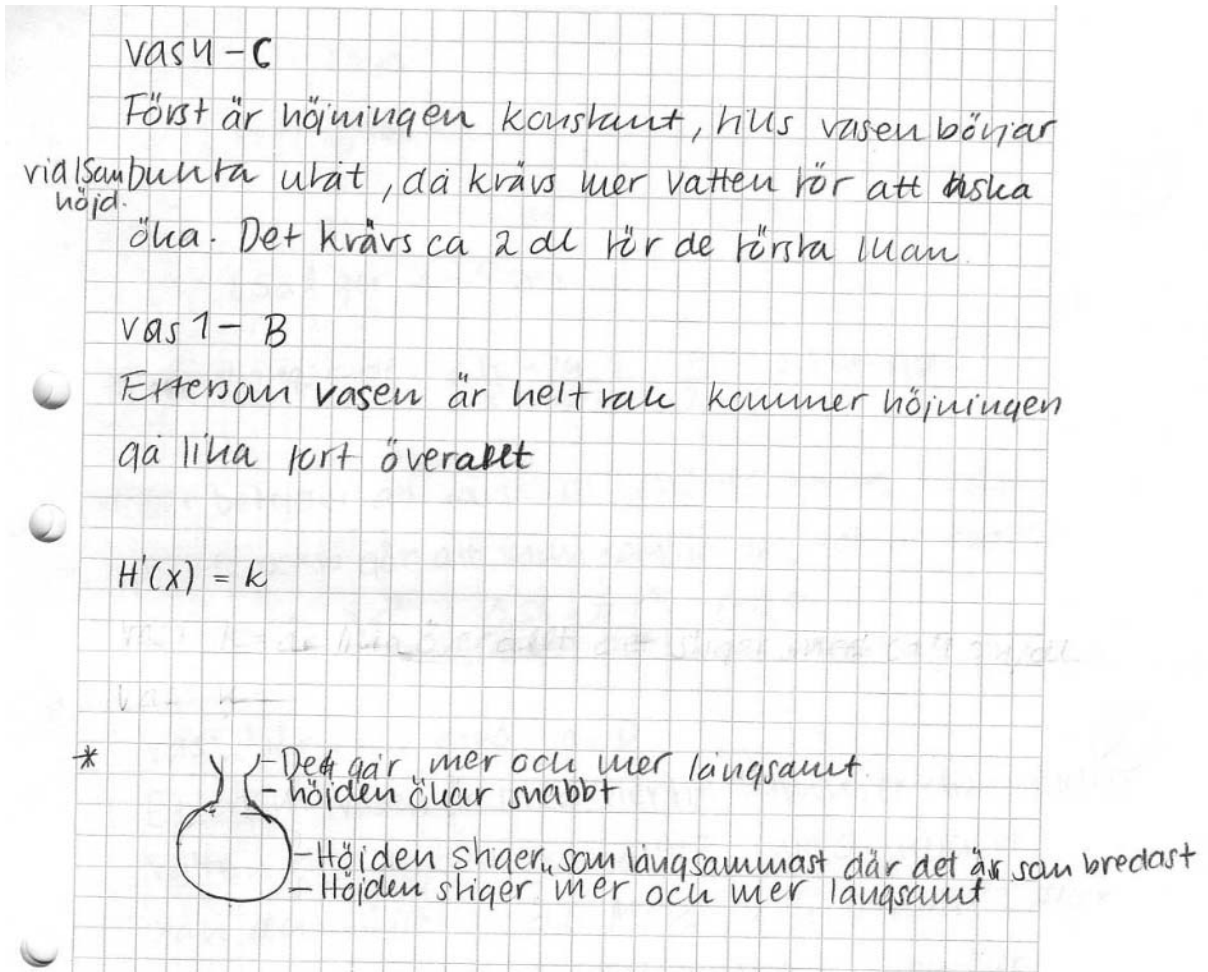 vas 4 - C
Först är höjningen konstant, tills vasen börjar
vid samma höjd.
bukta utåt, då krävs mer vatten för att
öka. Det krävs ca 2 dl för de första
vas 1 - B
Eftersom vasen är helt rak kommer höjningen
gå lika fort överallt
H'(x) = k
* - Det går mer och mer långsamt.
- höjden ökar snabbt
- Höjden stiger som långsammast där det är som bredast
- Höjden stiger mer och mer långsamt